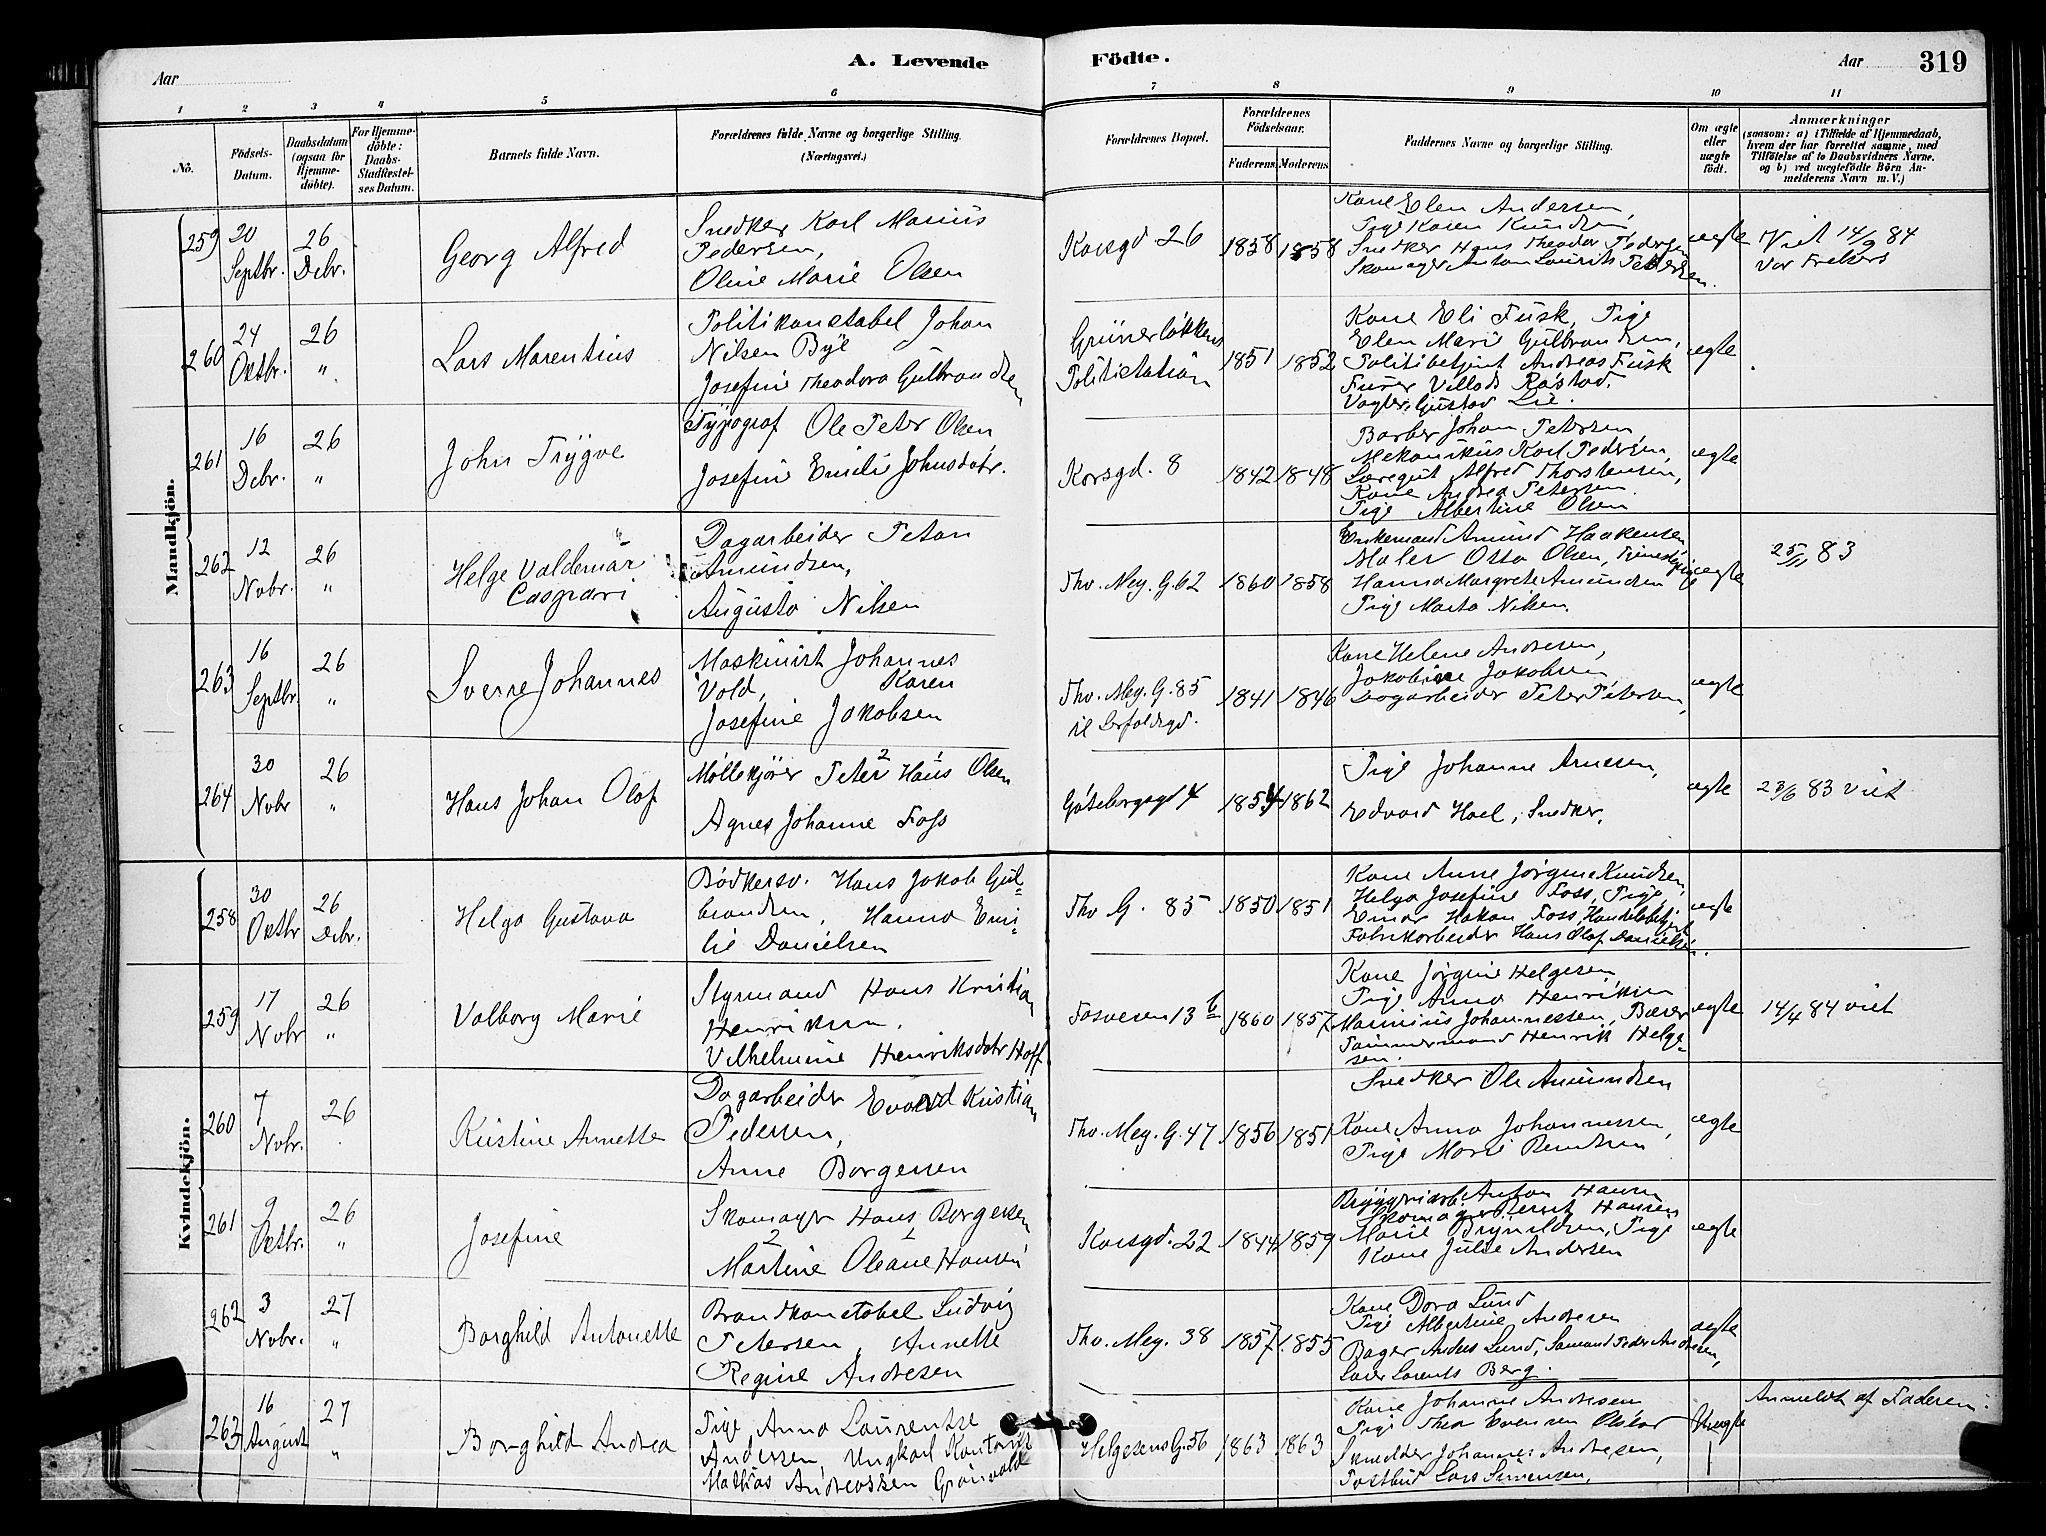 Aar
A. Levende
Födte.
Aar
319
1 2 3 4 5 6 7 8 9 10 11
No.
Födsels-Datum.
Daabsdatum (ogsaa for Hjemme-döbte).
For Hjemme-döbte: Daabs-Stadfæstel-ses Datum.
Barnets fulde Navn.
Forældrenes fulde Navne og borgerlige Stilling.
(Næringsvei.)
Forældrenes Bopæl.
Forældrenes Födselsaar.
Faderens. Moderens.
Faddernes Navne og borgerlige Stilling.
Om ægte eller uægte födt.
Anmærkninger
(saasom: a) i Tilfælde af Hjemmedaab,
hvem der har forrettet samme, med
Tilföielse af to Daabsvidners Navne.
og b) ved uægtefödte Börn An-
melderens Navn m. V.)
Mandkjön.
259 20 Septbr. 26 Debr.
Georg Alfred
Snedker Karl Marius
Pedersen,
Oline Marie Olsen
Korsgd 26
1858 1858
Kone Elen Andersen,
Pige Karen Knudsen
Snedker Hans Theodor Pedersen
Skomager Anton Laurits Pedersen.
ægte
Viet 14/9 84
Vor Frelsers
260 24 Oktbr. 26 "
Lars Marentius
Politikonstabel Johan
Nilsen Bye
Josefine Theodora Gulbrandsen
Grünerløkkens
Politistation
1851 1852
Kone Eli Fusk, Pige
Elen Marie Gulbrandsen,
Politibetjent Andreas Fusk
Furer Villads Råstad.
Vogter, Gustad Lie.
ægte
261 16 Debr. 26 "
John Trygve
Typograf Ole Peter Olsen
Josefine Emilie Johnsdatr.
Korsgd. 8
1842 1848
Barber Johan Petersen
Mekanikus Karl Pedersen,
Læregut Alfred Thorstensen,
Kone Andrea Petersen.
Pige Albertine Olsen
ægte
262 12 Novbr. 26 "
Helge Valdemar
Caspari
Dagarbeider Petan
Amundsen,
Augusta Nilsen
Thv. Mey. G. 62
1860 1858
Enkemand Amund Haakensen
Maler Otto Olsen, Tjenestepige
Hanna Margrete Amundsen
Pige Marta Nilsen.
ægte
25/11 83
263 16 Septbr. 26 "
Sverre Johannes
Maskinist Johannes
Vold, Karen
Josefine Jakobsen
Thv. Mey. G. 85
til Sorfoldsgd.
1841 1846
Kone Helene Andresen,
Jakobine Jakobsen
Dagarbeider Peter Petersen,
ægte
264 30 Novbr 26 "
Hans Johan Olaf
Møllekjører Peter 2 Hans 1 Olsen
Agnes Johanne Foss
Göteborgsgd 4
1854 1862
Pige Johanne Arnesen,
Edvard Hoel, Snedker.
ægte
23/6 83 viet
Kvindekjön.
258 30 Oktbr 26 Debr.
Helga Gustava
Bødkersv. Hans Jakob Gul-
brandsen, Hanna Emi-
lie Danielsen
Thv G. 85
1850 1851
Kone Anne Jörgine Knudsen,
Helga Josefine Foss, Pige,
Einar Hakon Foss, Handelsbetjent
Fabrikarbeider Hans Olaf Danielsen.
ægte
259 17 Novbr 26 "
Valborg Marie
Styrmand Hans Kristian
Henriksen.
Vilhelmine Henriksdatr Hoff
Fosveien 13 b
1860 1857
Kone Jörgine Helgesen
Pige Anna Henriksen
Marinius Johannessen, Bærer
Tømmermand Henrik Helge-
sen.
ægte
14/4 84 viet
260 7 Novbr. 26
Kristine Annette
Dagarbeider Evard Kristian
Pedersen,
Anne Borgersen
Thv. Mey. G. 47
1856 1851
Snedker Ole Amundsen
Kone Anna Johannessen,
Pige Marie Rentsen
ægte
261 9 Oktbr. 26 "
Josefine
Skomager Hans Borgersen
Martine 2 Oleane 2 Hansen
Korsgd. 22
1844 1859
Bryggeriarb Anton Hansen
Skomager Bernt Hansen
Marie Brynildsen, Pige
Kone Julie Andersen
ægte
262 3 Novbr. 27 "
Borghild Antonette
Brandkonstabel Ludvig
Petersen, Annette
Regine Andresen
Thv. Mey. 38
1857 1855
Kone Dora Lund
Pige Albertine Andresen
Bager Anders Lund, Sømand Peder Andresen,
Larer Lorents Berg.
ægte
263 16 August 27 "
Borghild Andrea
Pige Anna Laurentze
Andersen, Ungkarl Kontorist
Mathias Andreassen Grönvold
Helgesens G. 56
1863 1863
Kone Johanne Andresen
Pige Thea Evensen Oskar
Smedder Johannes Andresen,
Postbud Lars Simensen,
Uægte
Anmeldt af Faderen.